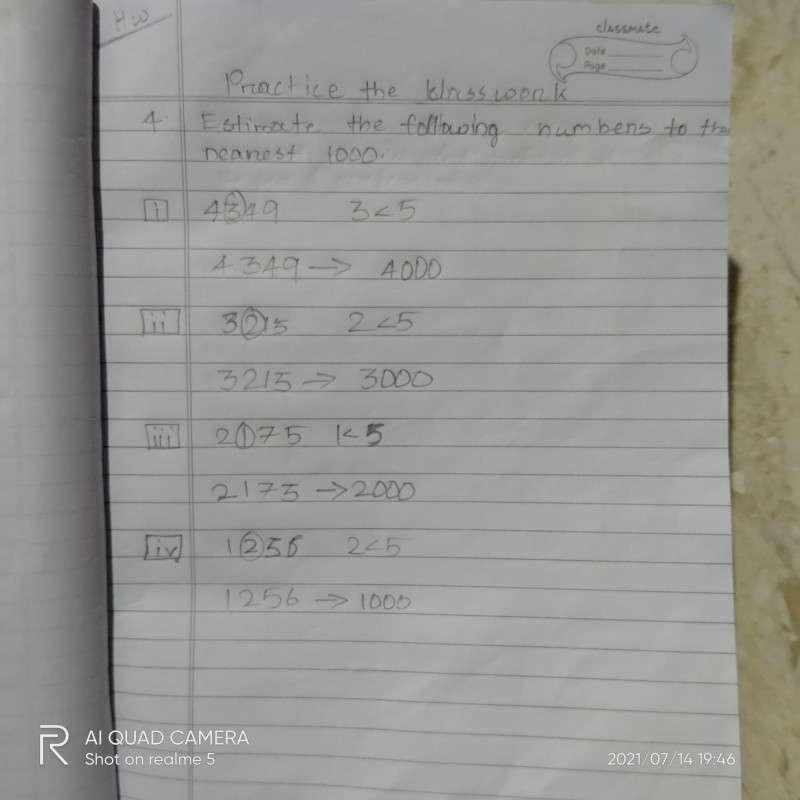 HW
classmate
Date
Page
Practice the klasswork
4. Estimate the following numbers to the
nearest 1000.
i 4349 3<5
4349 → 4000
ii 3215 2<5
3215 → 3000
iii 2175 1<5
2175 → 2000
iv 1256 2<5
1256 → 1000
R AI QUAD CAMERA
Shot on realme 5
2021/07/14 19:46